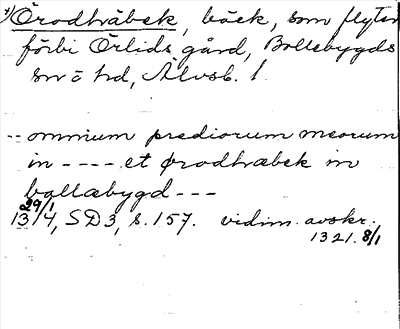 *) Örodhræbek, bäck, som flyter
förbi Örlids gård, Bollebygds
sn o hd, Älvsb. l.
-- omnium prediorum meorum
in ---- et ørodhræbek in
bollæbygd ---
29/1 1314, SD3, s. 157. vidim. avskr.
1321. 8/1